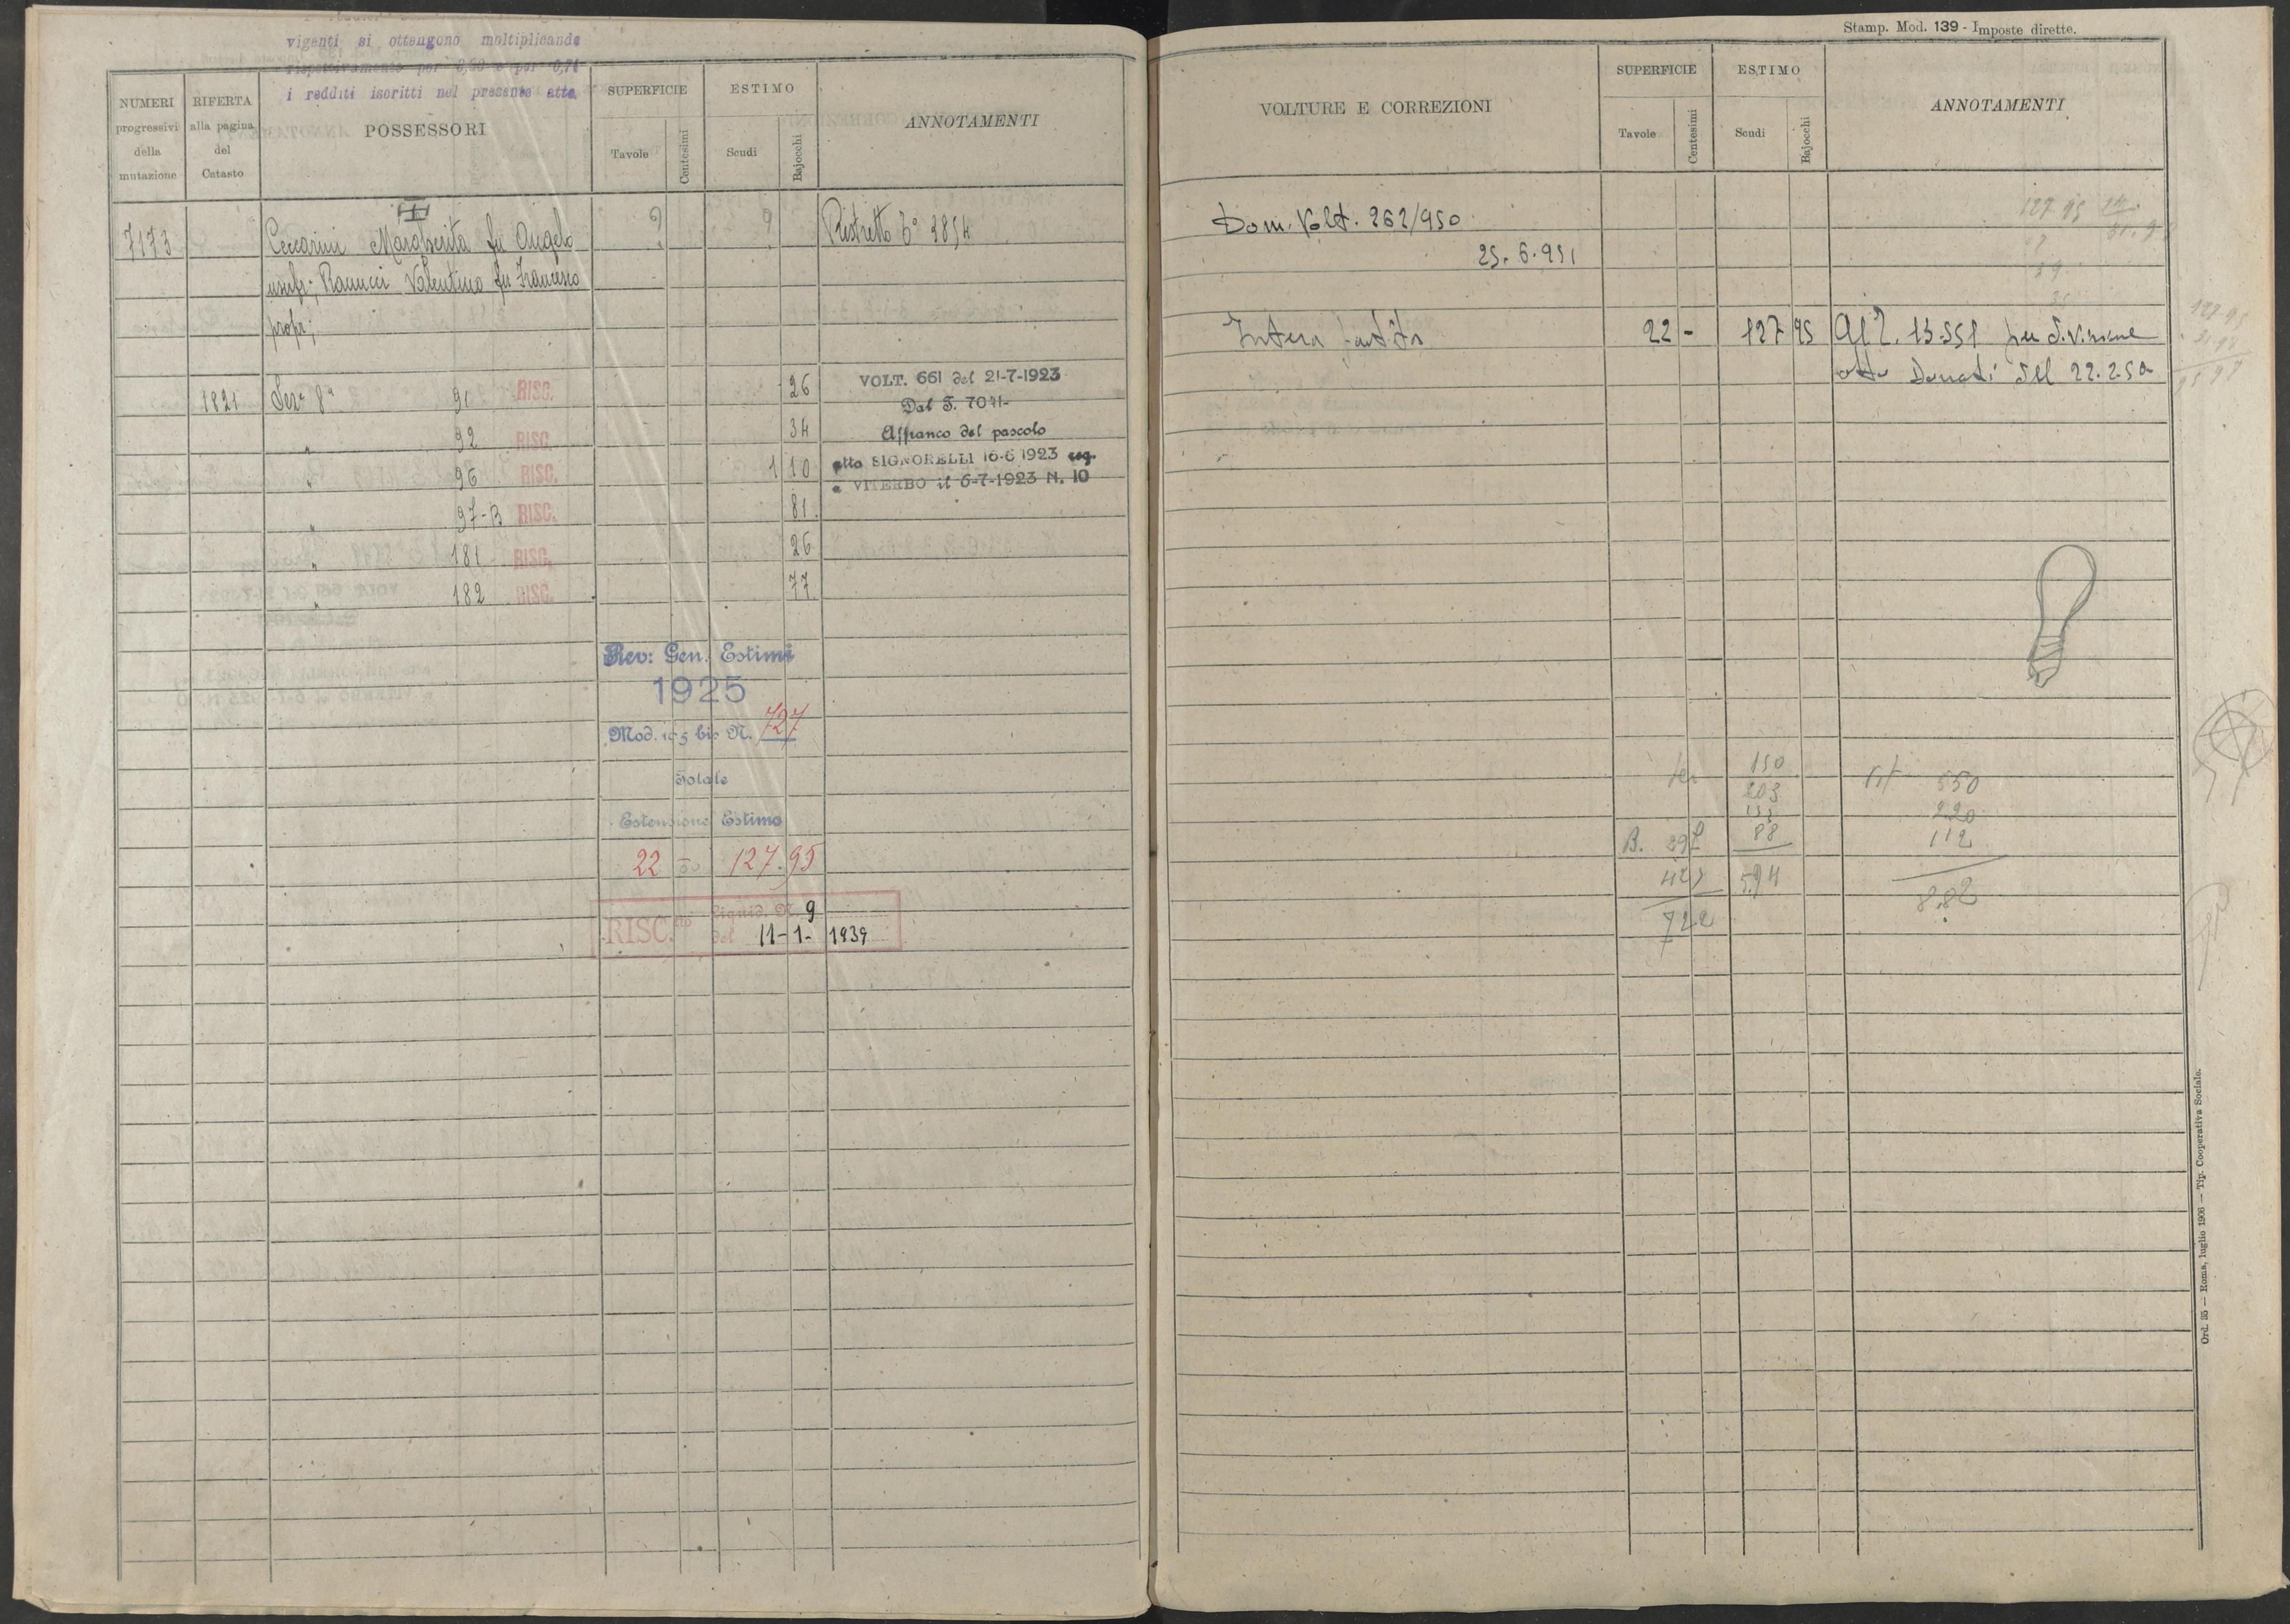 vigenti si ottengono moltiplicando
rispettivamente per 0,60 e per 0,71
i redditi iscritti nel presente atto
NUMERI progressivi della mutazione
RIFERTA alla pagina del Catasto
POSSESSORI
SUPERFICIE
Tavole
Centesimi
ESTIMO
Scudi
Bajocchi
ANNOTAMENTI
I
7173 Ceccarini Margherita fu Angelo 9 9 Ristretto 6° 3854
usufr; Ranucci Valentino fu Francesco
propr;
1821 Sez. 8ª 91 RISC. 26
" 92 RISC. 34
" 96 RISC. 1 10
" 97-B RISC. 81
" 181 RISC. 26
" 182 RISC. 77
VOLT. 661 del 21-7-1923
Dal T. 7071-
Affranco del pascolo
atto SIGNORELLI 16-6 1923 reg.
a VITERBO il 6-7-1923 N. 10
Rev: Gen. Estimi
1925
Mod. 105 bis N. 727
Totale
Estensione Estimo
22 127.95
RISC.to Liquid. N. 9
del 11-1- 1939
Stamp. Mod. 139 - Imposte dirette.
VOLTURE E CORREZIONI
SUPERFICIE
Tavole
Centesimi
ESTIMO
Scudi
Bajocchi
ANNOTAMENTI
Dom. Volt. 262/950
25.6.951
Intera partita 22 - 127 95 Al 2. 13.551 per divisione
atto Donati del 22.2.50
127 95
150
203
88
594
B.
722
550
220
112
8.82
Ord. 35 — Roma, luglio 1906 — Tip. Cooperativa Sociale.